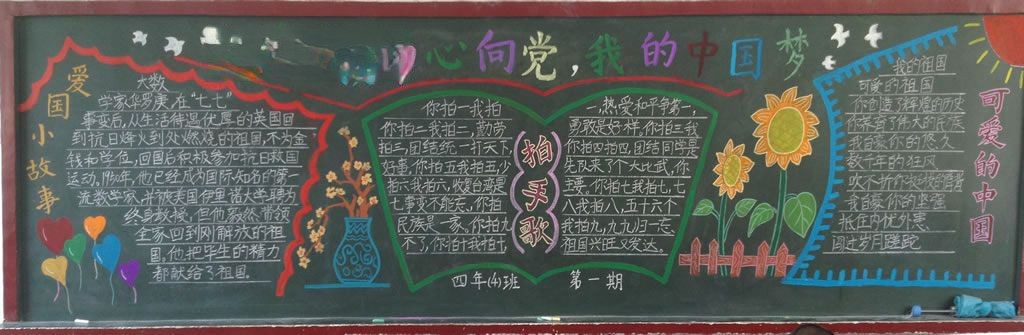 心向党,我的中国梦
爱国小故事
大数
学家华罗庚,在“七七”
事变后,从生活待遇优厚的英国回
到抗日烽火到处燃烧的祖国,不为金
钱和学位,回国后积极参加抗日救国
运动。1950年,他已经成为国际知名的第一
流数学家,并被美国伊里诺大学聘为
终身教授,但他毅然带领
全家回到刚解放的祖
国,他把毕生的精力
都献给了祖国。
你拍一我拍
你拍二我拍二,勤劳
拍三,团结统一打天下
你拍五我拍五,少
拍六我拍六,收复台湾是
七事变不能忘,你拍
民族是一家,你拍九
不了,你拍十我拍十,
拍手歌
一,热爱和平争第一,
勇敢是好样,你拍三我
你拍四我拍四,团结同学是
先队来了个大比武,你
你拍七我拍七,七
八我拍八,五十六个
我拍九,九九归一忘
祖国兴旺又发达。
四年(4)班 第一期
我的祖国
可爱的祖国
你创造了辉煌的历史
你养育了伟大的民族
我自豪你的悠久
数千年的狂风
吹不折你挺拔的脊背
我自豪你的坚强
抵住内忧外患
闯过岁月蹉跎
可爱的中国